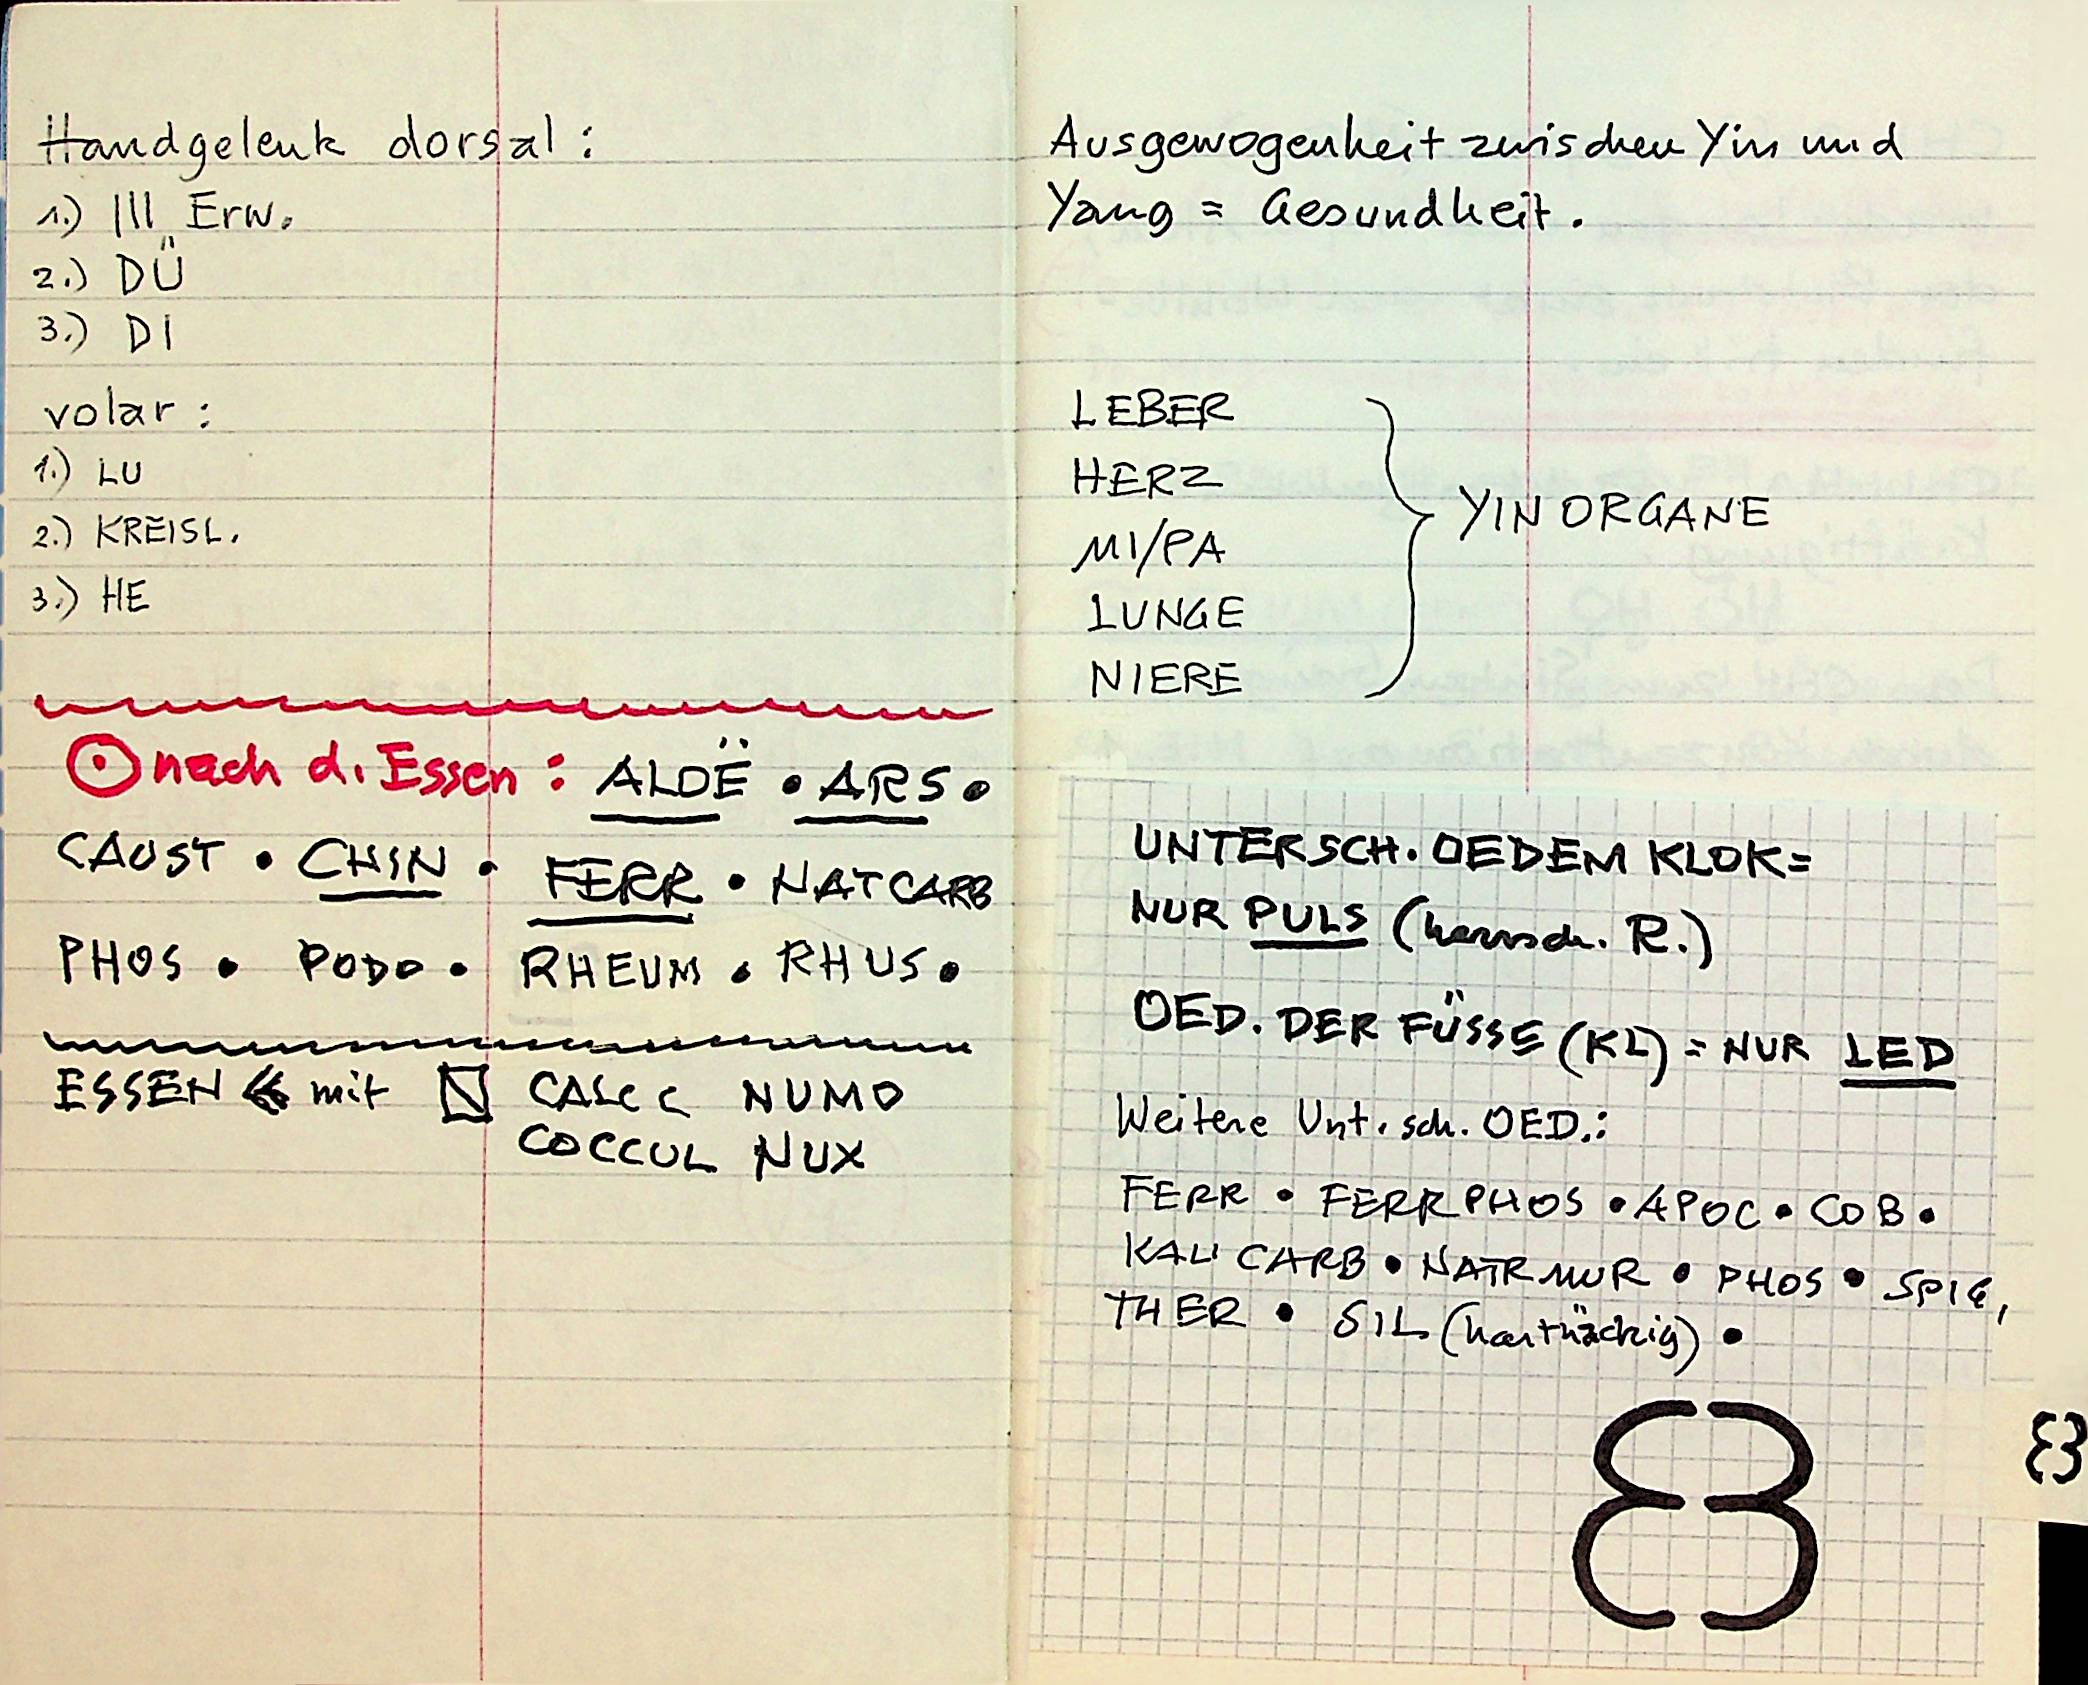 Handgelenk dorsal:
1.) III Erw.
2.) DÜ
3.) DI
volar:
1.) LU
2.) KREISL.
3.) HE
nach d. Essen: ALOË • ARS •
CAUST • CHIN • FERR • NATCARB
PHOS • PODO • RHEUM • RHUS •
ESSEN << mit CALC C NUMO
COCCUL NUX
Ausgewogenheit zwischen Yin und
Yang = Gesundheit.
LEBER
HERZ
MI/PA
LUNGE
NIERE
YIN ORGANE
UNTERSCH. OEDEM KLOK=
NUR PULS (herrsch. R.)
OED. DER FÜSSE (KL) = NUR LED
Weitere Unt.sch. OED.:
FERR • FERR PHOS • APOC • COB •
KALI CARB • NATR MUR • PHOS • SPIG,
THER • SIL (hartnäckig) •